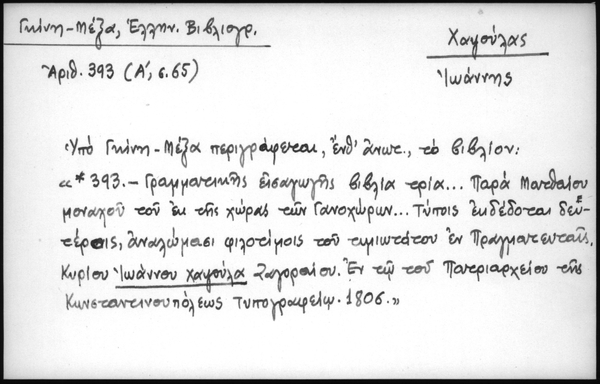 Γκίνη-Μέξα, Ἑλλην. Βιβλιογρ.
Χαγούλας
Ἀριθ. 393 (Α΄, σ. 65)
Ἰωάννης
Ὑπό Γκίνη-Μέξα περιγράφεται, ἔνθ' ἄνωτ., τό βιβλίον:
«*393.- Γραμματικῆς εἰσαγωγῆς βιβλία τρία... Παρά Ματθαίου
μοναχοῦ τοῦ ἐκ τῆς χώρας τῶν Γανοχώρων... Τύποις ἐκδέδοται δευ-
τέροις, ἀναλώμασι φιλοτίμοις τοῦ τιμιωτάτου ἐν Πραγματευταῖς,
Κυρίου Ἰωάννου Χαγούλα Ζαγοραίου. Ἐν τῷ τοῦ Πατριαρχείου τῆς
Κωνσταντινουπόλεως Τυπογραφείῳ. 1806.»